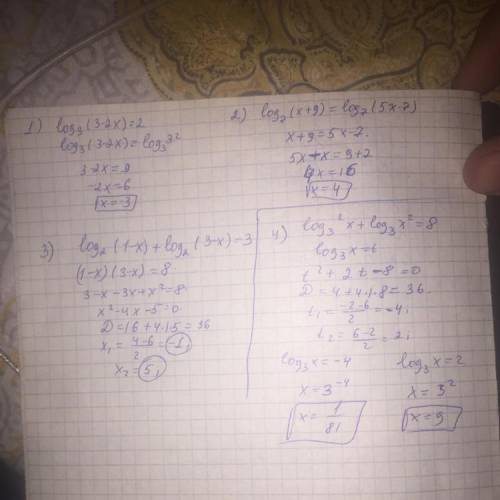 1) log₃(3-2x)=2
log₃(3-2x)=log₃3²
3-2x=9
-2x=6
x=-3
2) log₇(x+9)=log₇(5x-7)
x+9=5x-7
5x-x=9+7
4x=16
x=4
3) log₂(1-x)+log₂(3-x)=3
(1-x)(3-x)=8
3-x-3x+x²=8
x²-4x-5=0
D=16+4·1·5=36
x₁=(4-6)/2=-1;
x₂=5;
4) log₃²x+log₃x²=8
log₃x=t
t²+2t-8=0
D=4+4·1·8=36
t₁=(-2-6)/2=-4;
t₂=(6-2)/2=2;
log₃x=-4
x=3⁻⁴
x=1/81
log₃x=2
x=3²
x=9